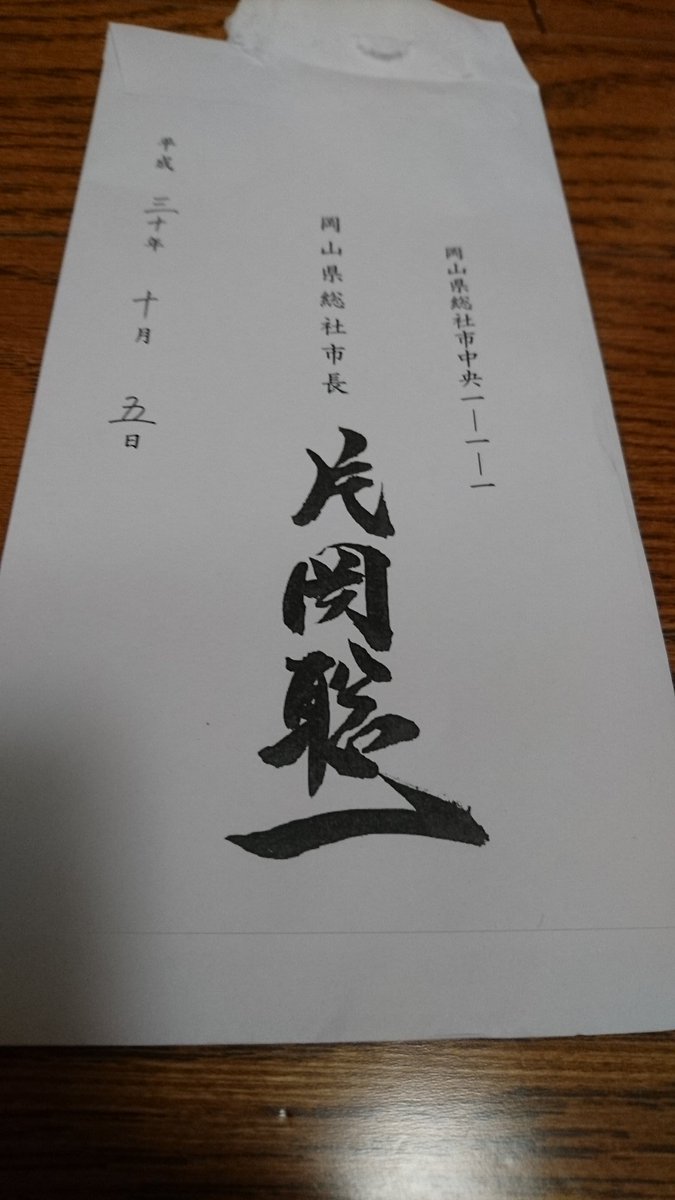 岡山県総社市中央一―一―一
岡山県総社市長
片岡聡一
平成三十年十月五日